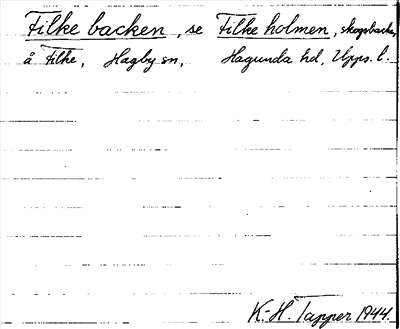 Filke backen, se Filke holmen, skogsbacke,
å Filke, Hagby sn, Hagunda hd, Upps. l.
K.-H. Tapper 1944.